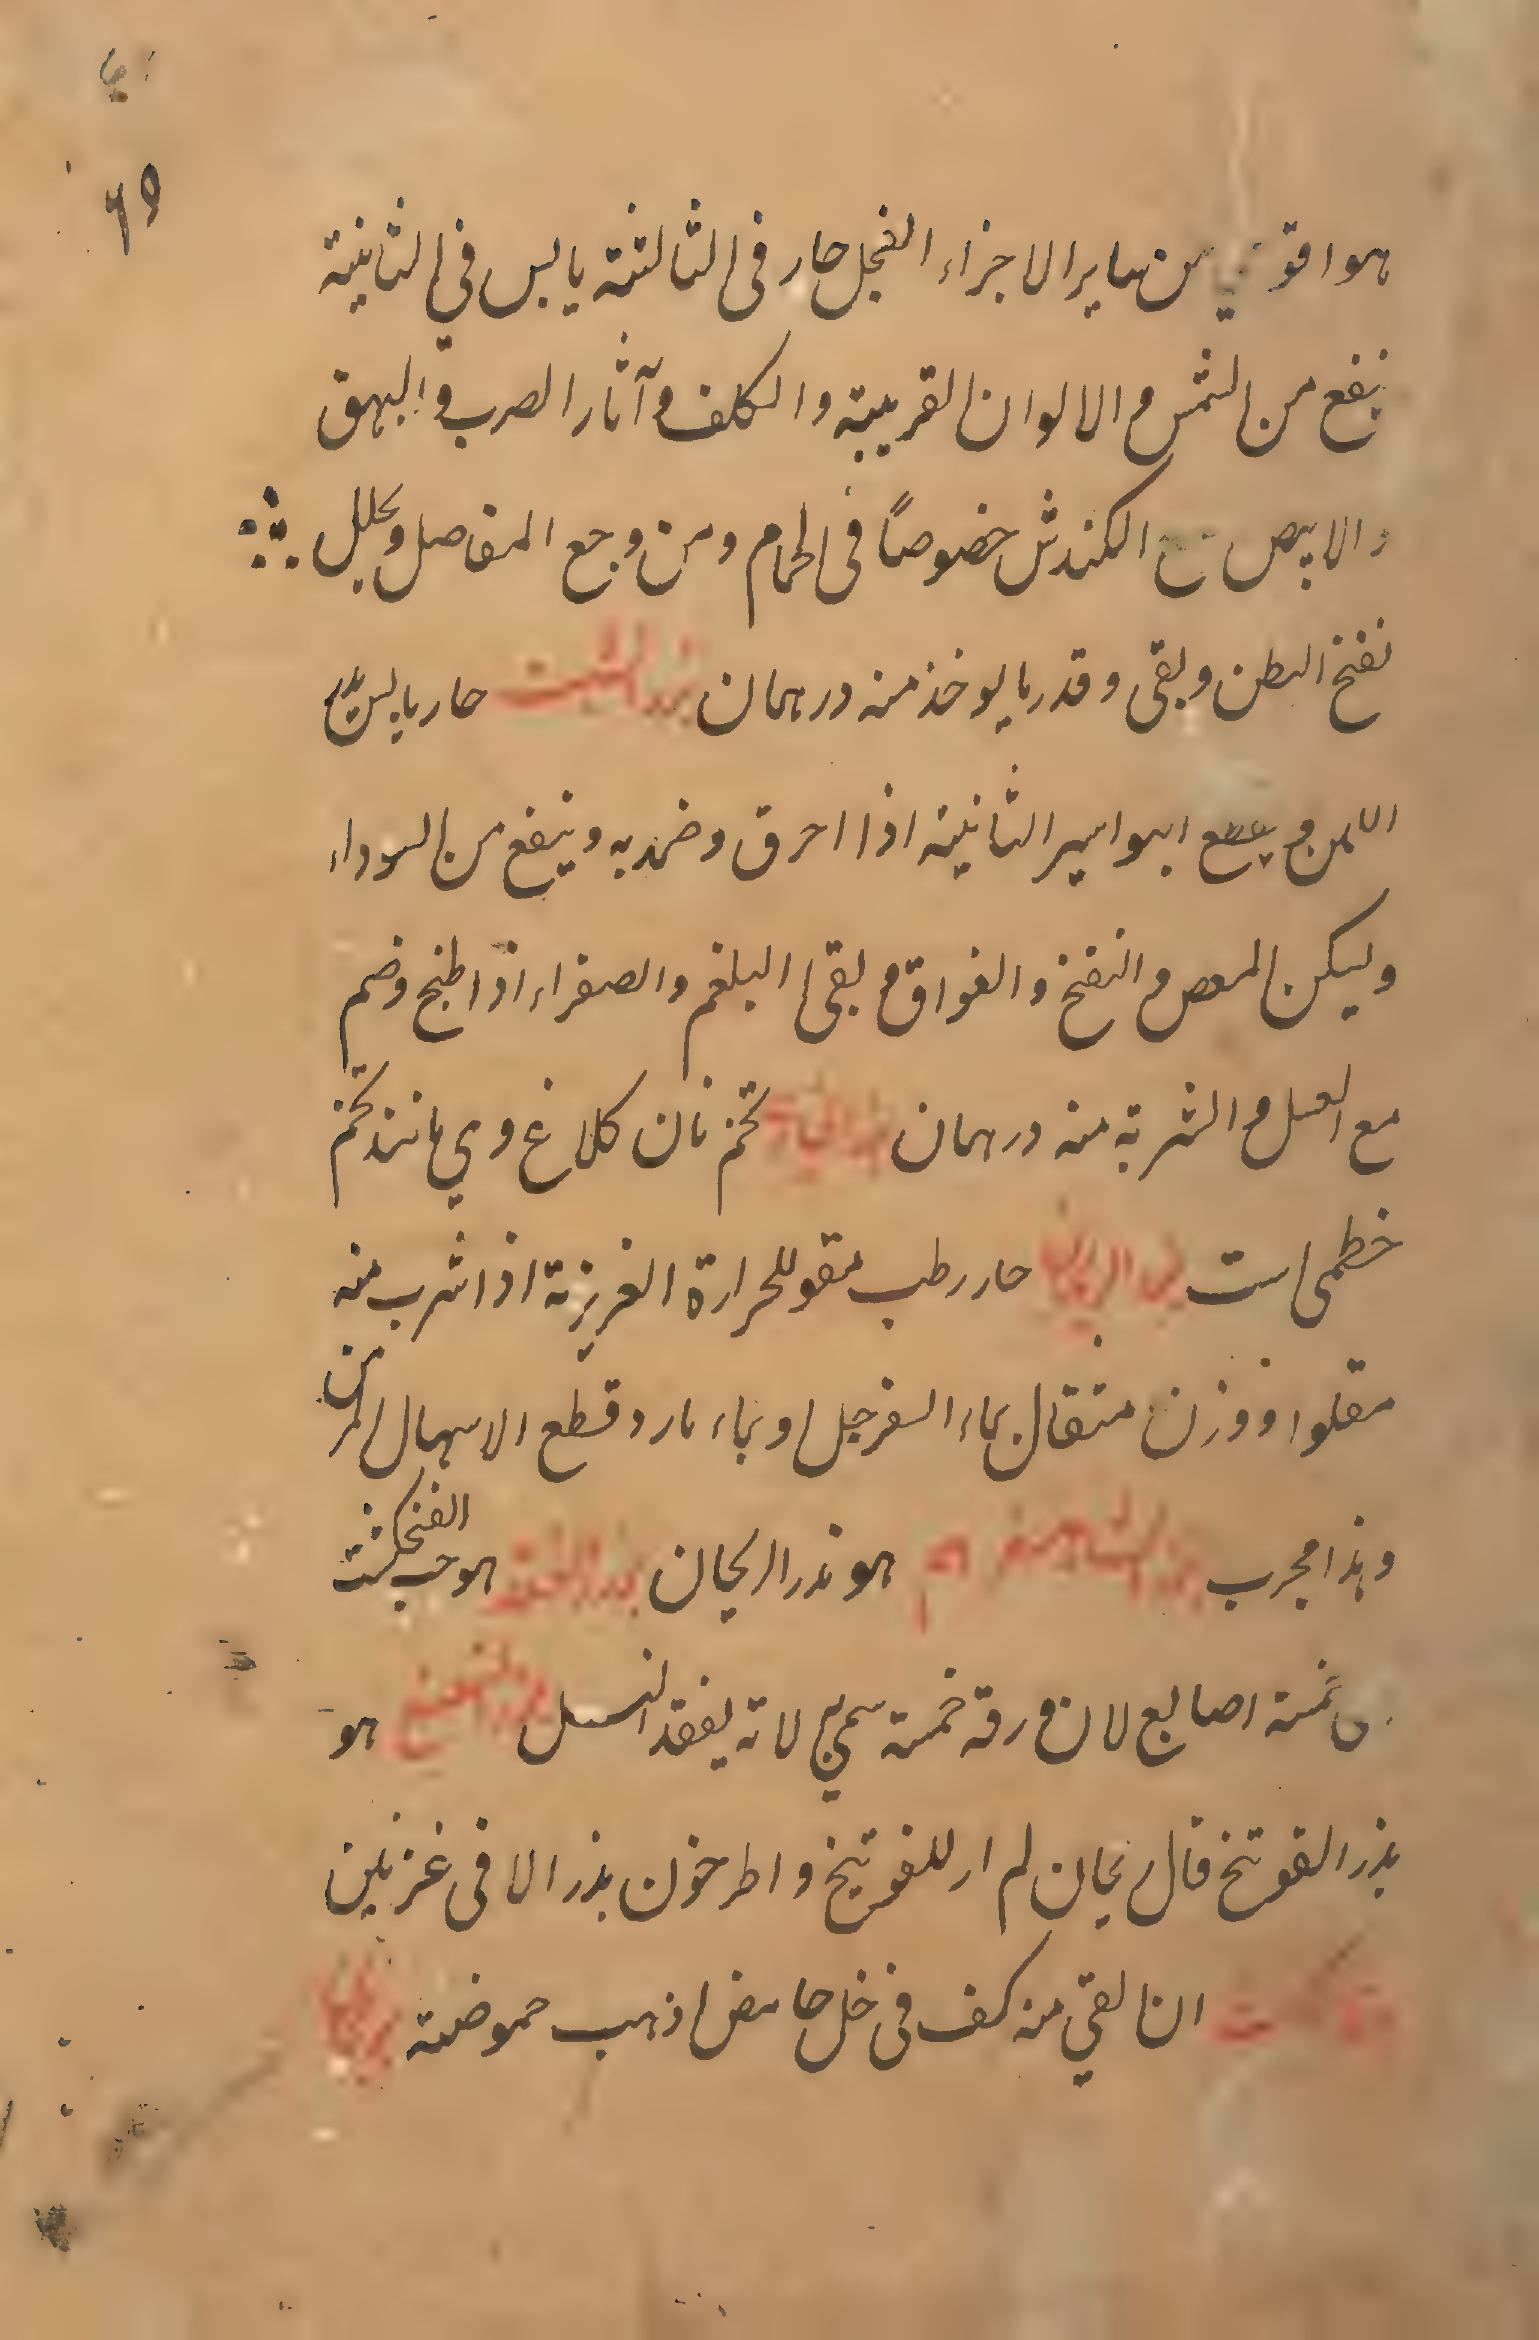 ٦٩
هو اقوي من ساير الاجزاء الفجل حار فى الثالثة يابس في الثانية
ينفع من النمش و الالوان القريبة و الكلف و آثار الضرب و البهق
و الابيض مع الكندش خصوصًا فى الحمام و من وجع المفاصل و يحلل
نفخ البطن و يقى و قدر ما يوخذ منه درهمان بذر الشبت حار يابس يدر
اللبن و يقطع البواسير الثانية اذا احرق و ضمد به و ينفع من السوداء
و يسكن المغص و النفخ و الفواق و يقى البلغم و الصفراء اذا طبخ و ضم
مع العسل و الشربة منه درهمان تخم نان كلاغ وي مانند تخم
خطمى است بذر الريحان حار رطب مقو للحرارة الغريزية اذا شرب منه
مقلوا و وزن مثقال بماء السفرجل او بماء بارد قطع الاسهال المزمن
و هذا مجرب بذر الشاهسفرم هو بذر الريحان هو حب الفنجنكشت
خمسة اصابع لان ورقه خمسة سمي به لانه يفقد النسل هو
بذر الفوتنج قال ريحان لم ار للفوتنج و اطرخون بذر الا فى غزنين
ان القي منه كف فى خل حامض اذهب حموضته